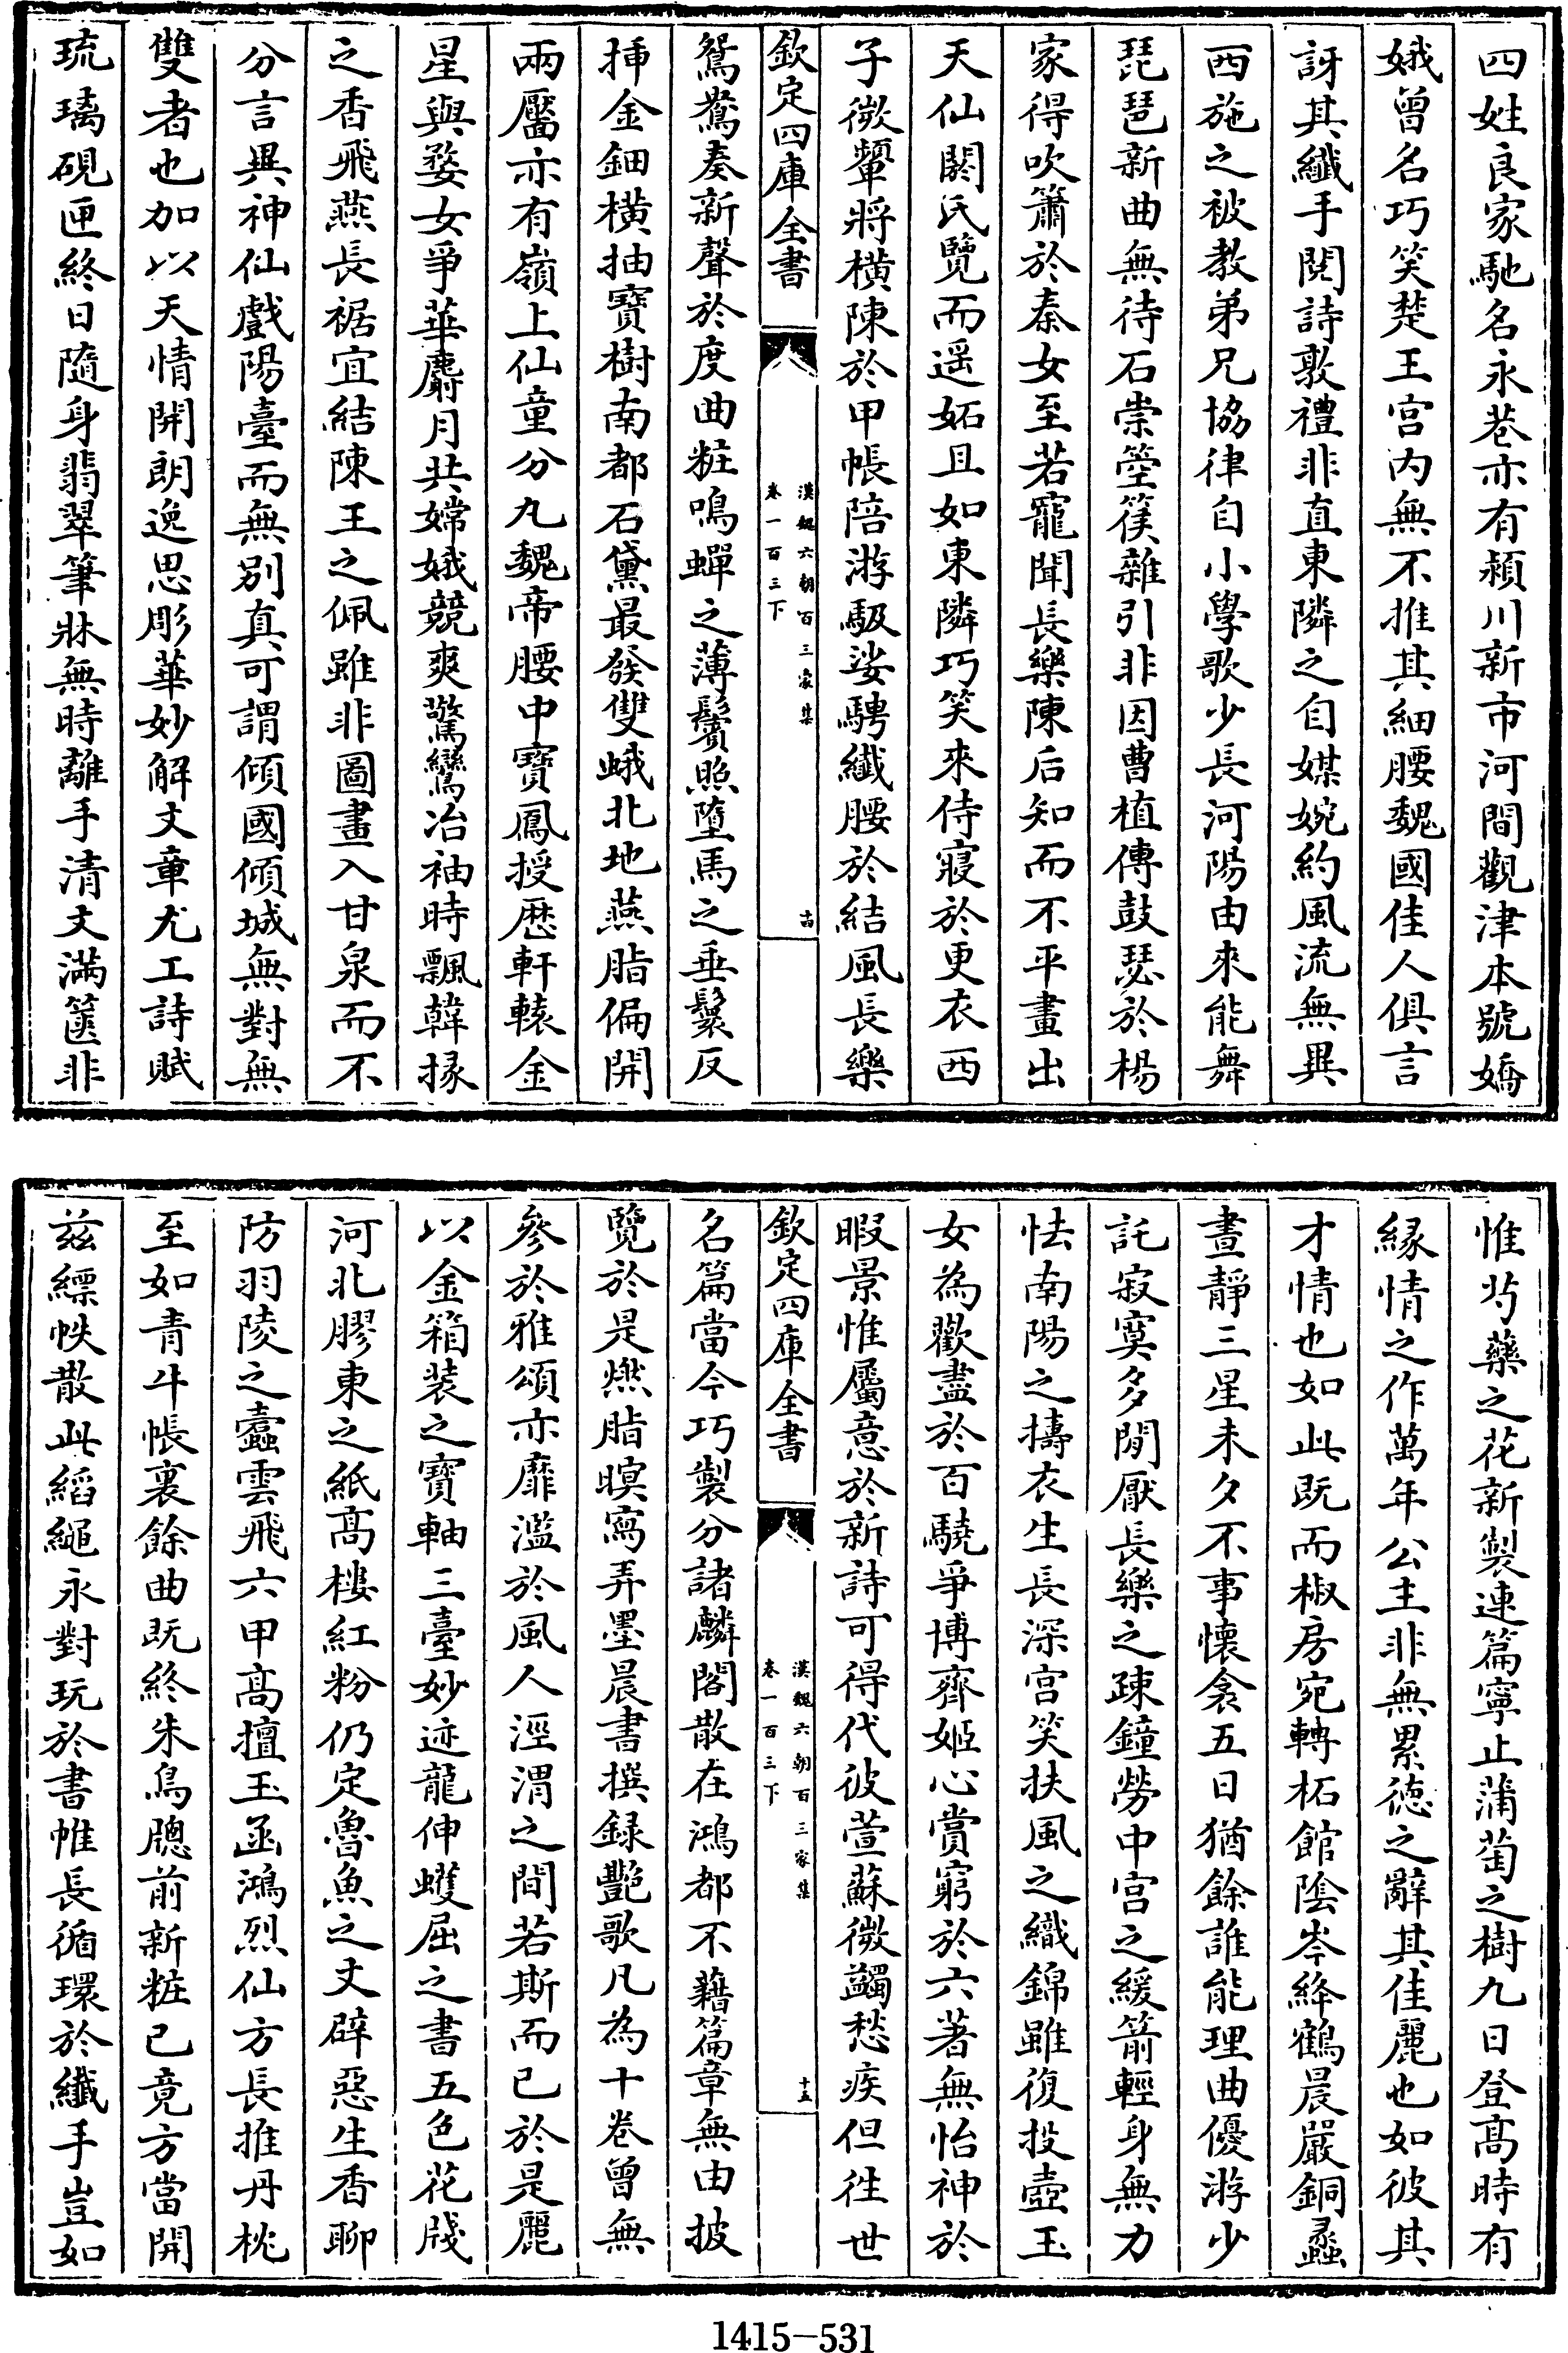 四姓良家馳名永巷亦有潁川新市河間觀津本號嬌
娥曾名巧笑楚王宮内無不推其細腰魏國佳人俱言
訝其纖手閱詩敦禮非直東隣之自媒婉約風流無異
西施之被教弟兄協律自小學歌少長河陽由來能舞
琵琶新曲無待石崇箜篌雜引非因曹植傳鼓瑟於楊
家得吹簫於秦女至若寵聞長樂陳后知而不平畫出
天仙閼氏覽而遥妬且如東隣巧笑來侍寢於更衣西
子微顰將橫陳於甲帳陪游馺娑騁纖腰於結風長樂
欽定四庫全書
漢魏六朝百三家集
卷一百三下
十四
鴛鴦奏新聲於度曲粧鳴蟬之薄鬢照墮馬之垂鬟反
挿金鈿橫抽寶樹南都石黛最發雙蛾北地燕脂偏開
兩靨亦有嶺上仙童分丸魏帝腰中寶鳳授歴軒轅金
星與婺女爭華麝月共嫦娥競爽驚鸞冶袖時飄韓掾
之香飛燕長裾宜結陳王之佩雖非圖畫入甘泉而不
分言異神仙戲陽臺而無别真可謂傾國傾城無對無
雙者也加以天情開朗逸思彫華妙解文章尤工詩賦
琉璃硯匣終日隨身翡翠筆牀無時離手清文滿篋非
惟芍藥之花新製連篇寧止蒲萄之樹九日登髙時有
緣情之作萬年公主非無累徳之辭其佳麗也如彼其
才情也如此既而椒房宛轉柘館陰岑絳鶴晨嚴銅蠡
晝靜三星未夕不事懷衾五日猶餘誰能理曲優游少
託寂寞多閒厭長樂之疎鐘勞中宮之緩箭輕身無力
怯南陽之擣衣生長深宮笑扶風之織錦雖復投壺玉
女為歡盡於百驍爭博齊姬心賞窮於六著無怡神於
暇景惟屬意於新詩可得代彼萱蘇微蠲愁疾但徃世
欽定四庫全書
漢魏六朝百三家集
卷一百三下
十五
名篇當今巧製分諸麟閣散在鴻都不藉篇章無由披
覽於是燃脂暝寫弄墨晨書撰録艷歌凡為十卷曾無
參於雅頌亦靡濫於風人涇渭之間若斯而已於是麗
以金箱装之寶軸三臺妙迹龍伸蠖屈之書五色花牋
河北膠東之紙髙樓紅粉仍定魯魚之文辟惡生香聊
防羽陵之蠹雲飛六甲髙擅玉函鴻烈仙方長推丹枕
至如青牛帳裏餘曲既終朱鳥牕前新粧已竟方當開
兹縹帙散此縚繩永對玩於書帷長循環於纖手豈如
1415-531